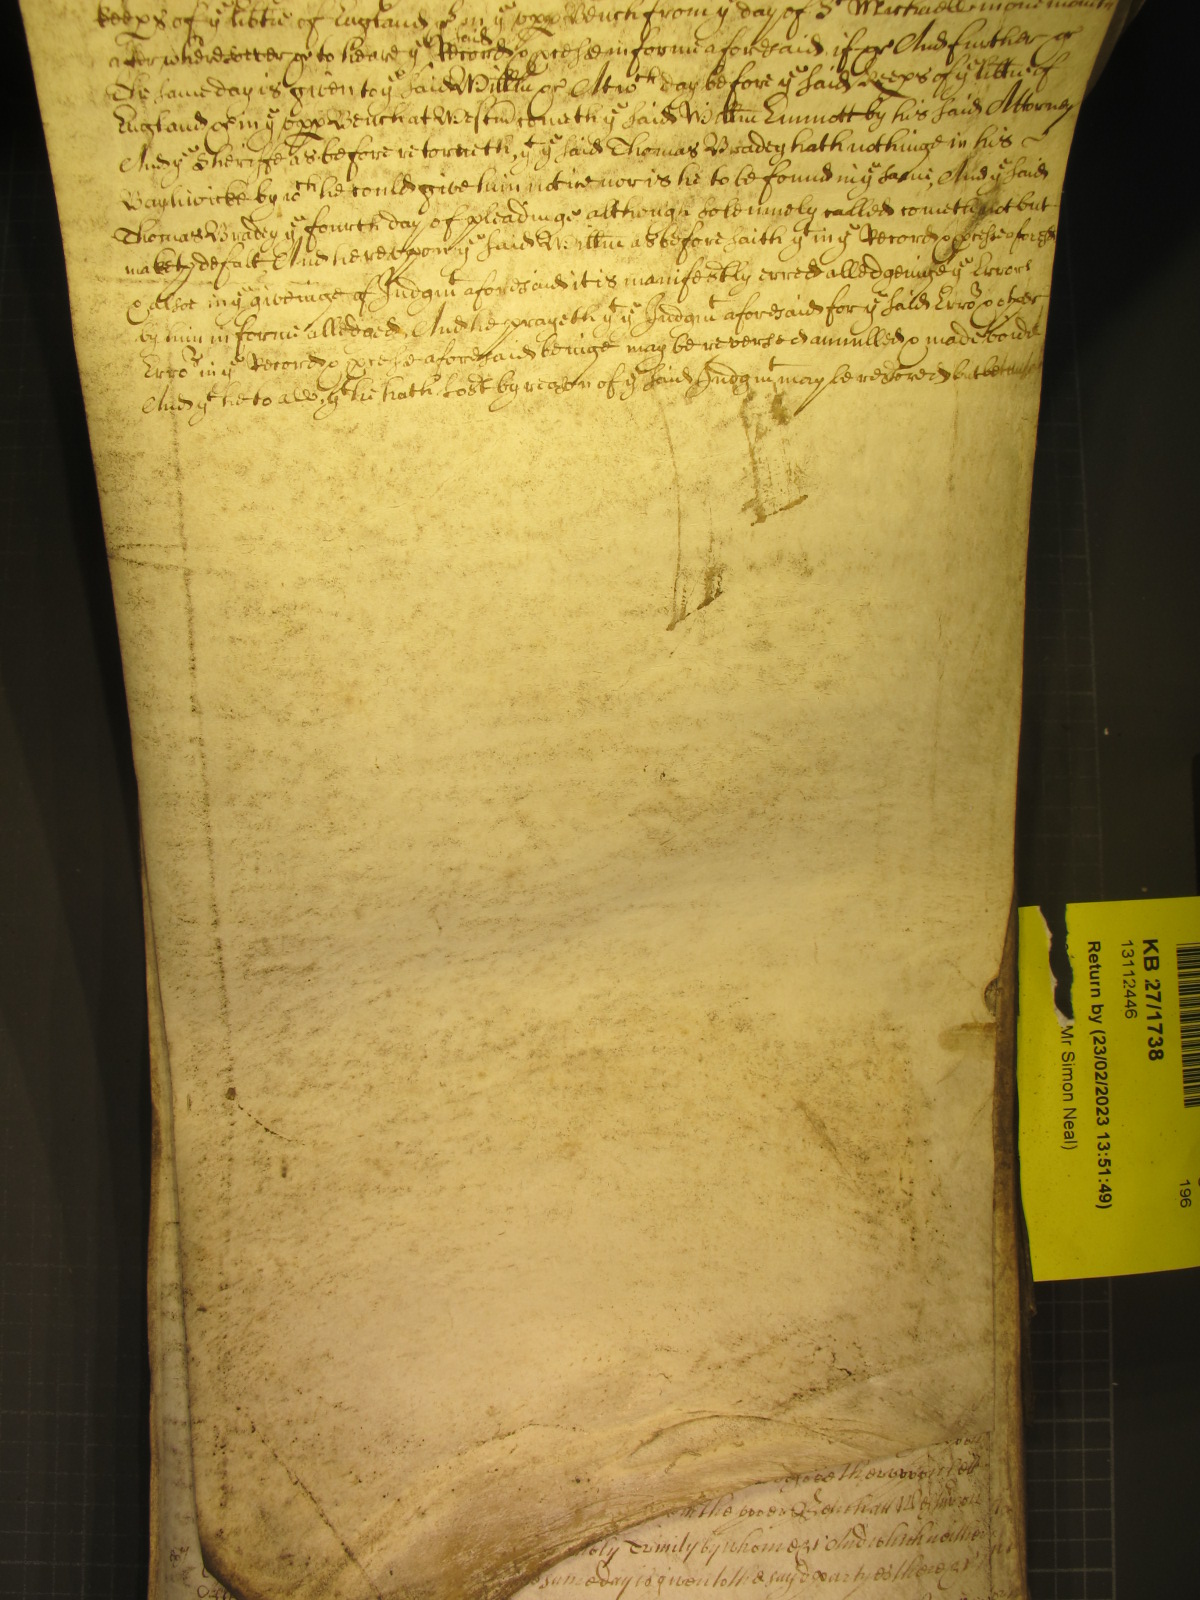 keeps of yᵉ litᵗⁱᵉ of England &c in yᵉ upp Bench from yᵉ day of Sᵗ Michaell in one month
wheresoever &c to heare yᵉ said Record & pcesse in forme aforesaid if &c And further &c
The same day is given to yᵉ said Willm &c At wᶜʰ day before yᵉ said keeps of yᵉ litᵗⁱᵉ of
England &c in yᵉ upp Bench at Westm cometh yᵉ said Willm Emmott by his said Attorney
And yᵉ Sheriffe as before retorneth yᵗ yᵉ said Thomas Bradey hath nothinge in his
Bayliwicke by wᶜʰ he could give him notice nor is he to be found in yᵉ same, And yᵉ said
Thomas Bradey yᵉ fourth day of pleadinge although solemnely called cometh not but
maketh defalt, And hereupon yᵉ said Willm as before saith yᵗ in yᵉ Record & pcesse aforesd
& alsoe in yᵉ giveinge of Judgmᵗ aforesaid it is manifestly erred alledgeinge yᵉ Errors
by him in forme alledged, And he prayeth yᵗ yᵉ Judgmᵗ aforesaid for yᵉ said Erroʳˢ & other
Erroʳˢ in yᵉ Record & pcesse aforesaid beinge may be reversed annulled & made voide
And yᵗ he to all yᵗ he hath lost by reason of yᵉ said Judgmᵗ may be restored but because
KB 27/1738
13112446
Return by (23/02/2023 13:51:49)
Mr Simon Neal)
196
in the
holy Trinity by whome &c And
same day is given to the sayd partyes there &c